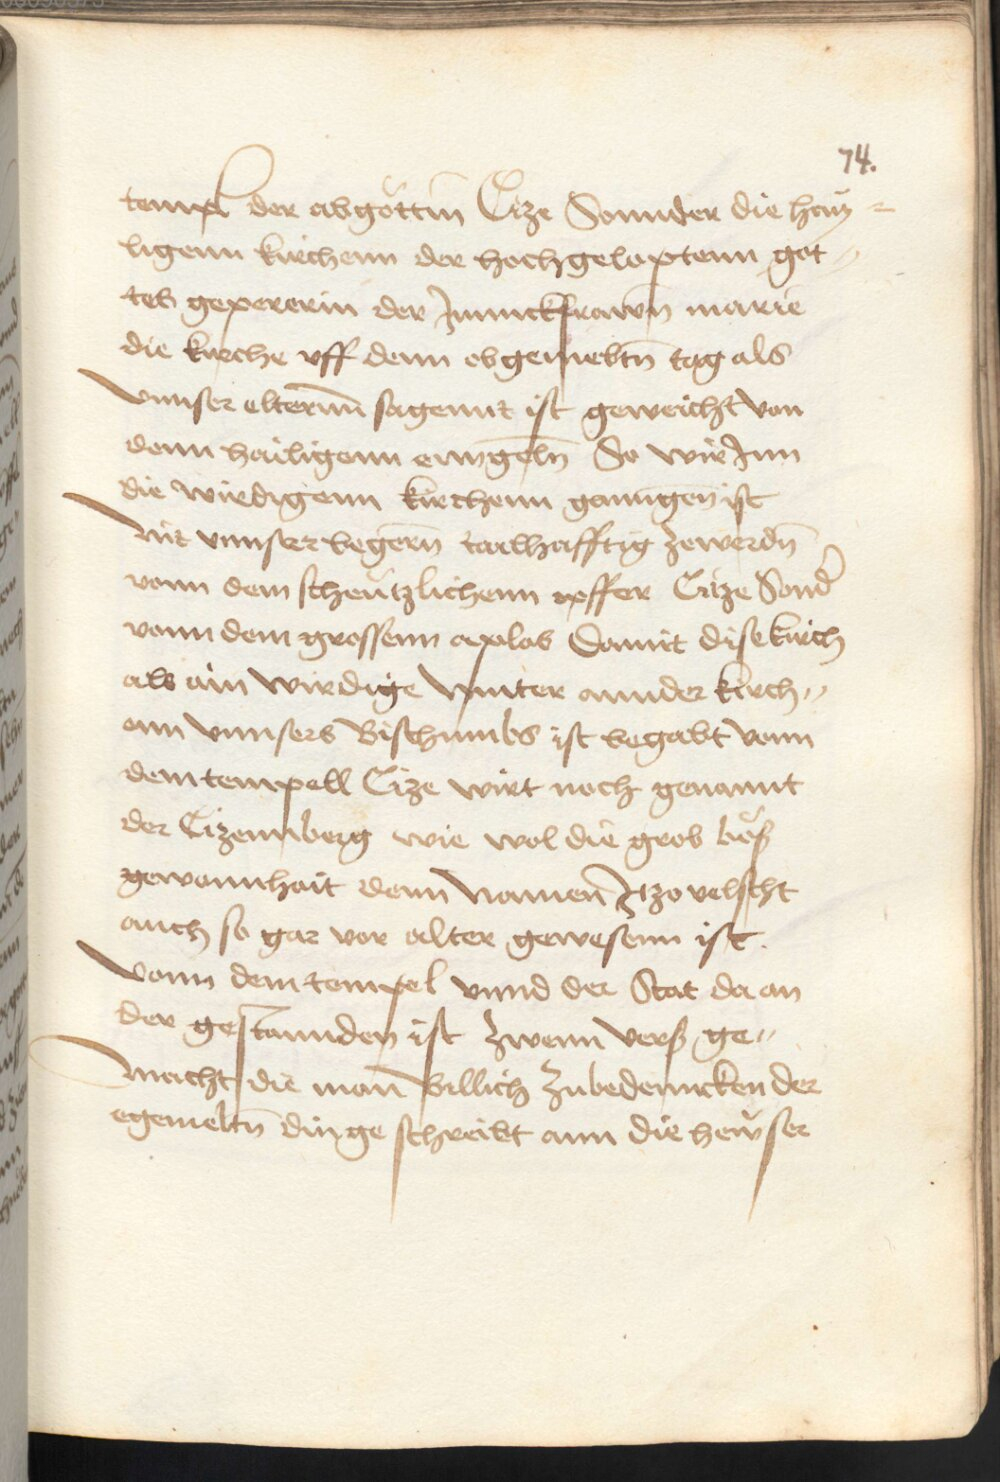 74.
templ der abgöttin Cize Sonnder die hay=
ligenn kirchenn der hochgeloptenn got„
tes gepererin der Junnckfrawn̄ marie
die kirche uff denn obgemeltn̄ tag als
vnnser elternn̄ sagennt ist geweicht von
denn hailigenn enngeln̄ So wir Inn
die wirdigenn kirchenn ganngen̄ ist
Nit vnnser begern̄ tailhafftig zewerdn̄
vonn dem scheutzlichenn opffer Cize Sond
vonn dem grossenn aplas Damit dise kirch
als ain wirdige Muter annder kirch„
enn vnnsers Bischumbs ist begabt Vonn
dem tempell Cize wirt noch genannt
der Cizennberg wie wol die grob bös
gewonnhait denn Namen̄ Itzo velscht
auch so gar vor alter gewesenn ist.
Vonn dem tempel vnnd der Stat da an
der gestannden ist zwenn vers ge„
macht die man̄ Billich zubedennckenn der
egemeltn̄ dinge schreibt ann die hewser